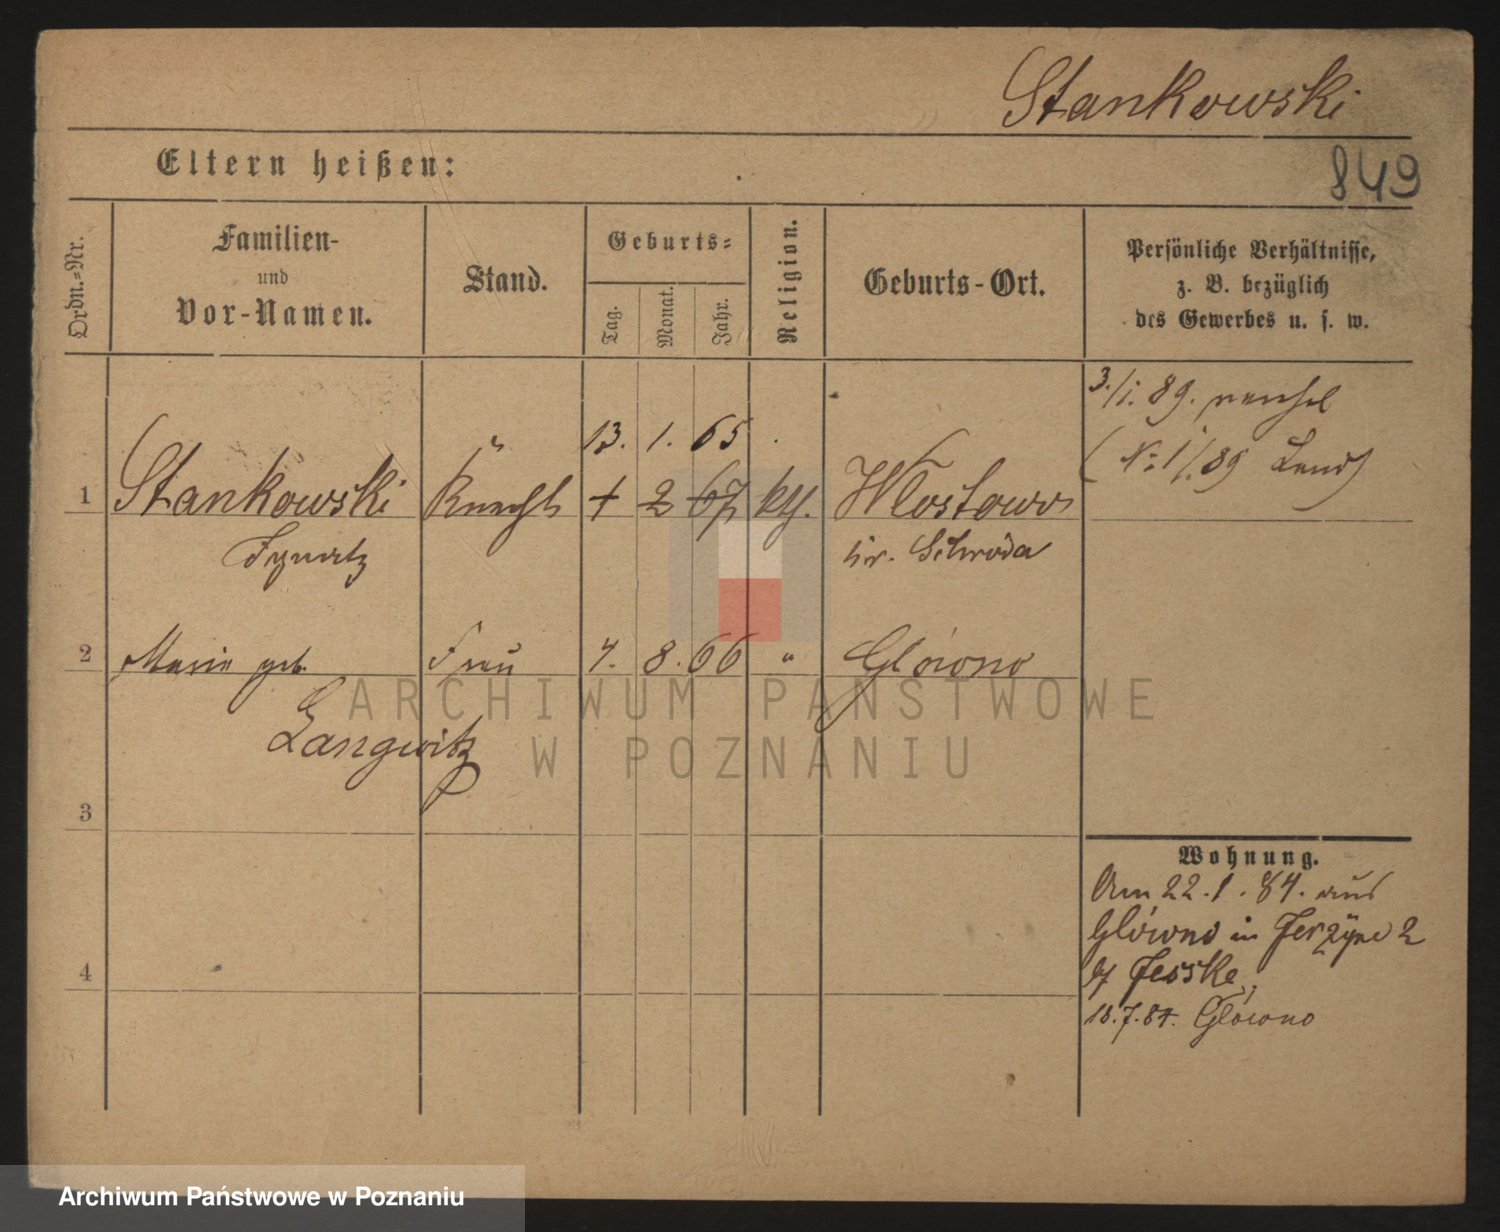 Stankowski
849
Eltern heißen:
Ordn.-Nr.
Familien-
und
Vor-Namen.
Stand.
Geburts-
Tag.
Monat.
Jahr.
Religion.
Geburts-Ort.
Persönliche Verhältnisse,
z. B. bezüglich
des Gewerbes u. s. w.
3./1. 89.
13. 1. 65
(№ 1/89 Land)
1 Stankowski Knecht 2 67 kth. Wlostowo
Ignatz kr. Schroda
2 Marie geb. Frau 4. 8. 66 " Glówno
Langwitz
3
4
Wohnung.
Am 22.1.84. aus
Glówno in Jerzyce 2
b/ Jesske
18.7.84. Glówno
ARCHIWUM PAŃSTWOWE
W POZNANIU
Archiwum Państwowe w Poznaniu